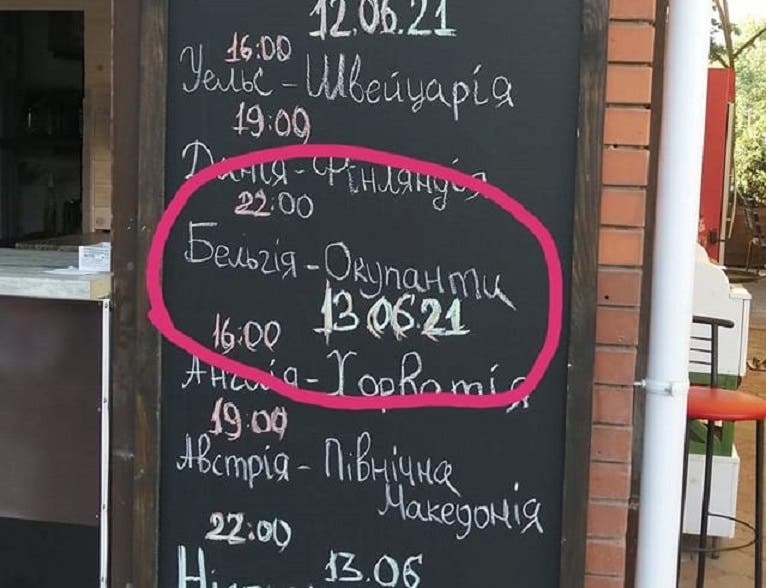 12.06.21
16:00
Уельс - Швейцарія
19:00
Данія - Фінляндія
22:00
Бельгія - Окупанти
13.06.21
16:00
Англія - Хорватія
19:00
Австрія - Північна
Македонія
22:00
13.06